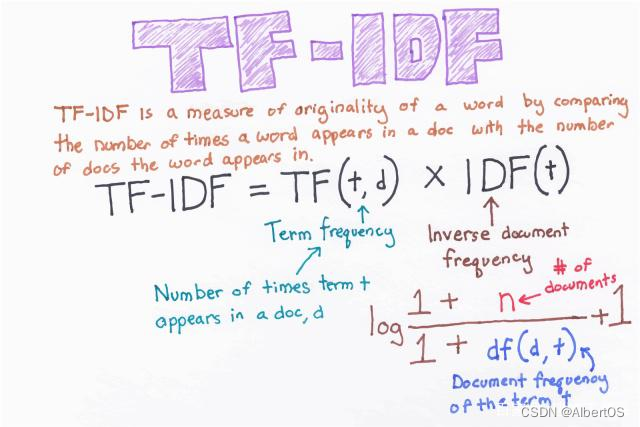 TF-IDF
TF-IDF is a measure of originality of a word by comparing
the number of times a word appears in a doc with the number
of docs the word appears in.
TF-IDF = TF(t, d) × IDF(t)
Term frequency
Inverse document
frequency
Number of times term t
appears in a doc, d
# of
documents
log (1 + n) / (1 + df(d, t)) + 1
Document frequency
of the term t
CSDN @AlbertOS